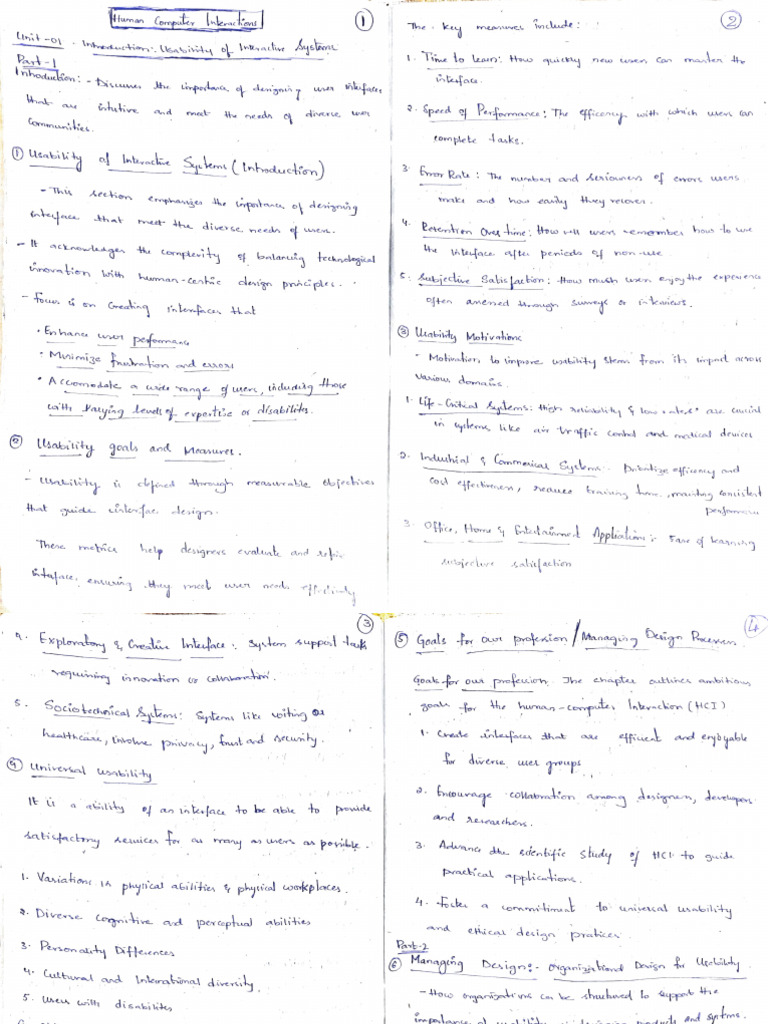 Human Computer Interactions
1
Unit-01 . Introduction: Usability of Interactive Systems
Part-1
Introduction: - Discusses the importance of designing user interfaces
that are intutive and meet the needs of diverse user
communities.
① Usability of Interactive Systems (Introduction)
- This section emphasizes the importance of designing
interface that meet the diverse needs of users.
- It acknowledges the complexity of balancing technological
innovation with human-centric design principles.
- Focus is on creating interfaces that
• Enhance user performance
• Minimize frustration and errors
• Accomodate a wide range of users, including those
with varying levels of expertise or disabilities.
② Usability goals and Measures.
- Usability is defined through measurable objectives
that guide interface design.
These metrics help designers evaluate and refine
interface, ensuring they meet user needs effectively
2
The key measures include:
1. Time to Learn: How quickly new users can master the
interface.
2. Speed of Performance: The efficency with which users can
complete tasks.
3. Error Rate: The number and seriousness of errors users
make and how easily they recover.
4. Retention Over time: How well users remember how to use
the interface after periods of non-use.
5. Subjective Satisfaction: How much users enjoy the experience
often assessed through surveys or interviews.
③ Usability Motivations
• Motivation to improve usability stems from its impact across
various domains.
1. Life-Critical Systems: High reliability & low are crucial
in systems like air traffic control and medical devices
2. Industrial & Commerical Systems. Prioritize efficency and
cost effectiveness, reduce training time, mainting consistent
performance
3. Office, Home & Entertainment Applications: Ease of learning
subjective satisfaction
3
4. Exploratory & Creative Interface: System support tasks
requiring innovation or collaboration.
5. Sociotechnical Systems: Systems like voting or
healthcare, involve privacy, trust and security.
④ Universal Usability
It is a ability of an interface to be able to provide
satisfactory services for as many as users as possible.
1. Variations in physical abilities & physical workplaces.
2. Diverse cognitive and perceptual abilities
3. Personality Differences
4. Cultural and International diversity
5. Users with disabilites
4
⑤ Goals for our profession / Managing Design Processes
Goals for our profession. The chapter outlines ambitious
goals for the human-computer Interaction (HCI)
1. Create interfaces that are efficient and enjoyable
for diverse user groups
2. Encourage collaboration among designers, developers
and researchers.
3. Advance the scientific study of HCI to guide
practical applications.
4. Foster a commitment to universal usability
and ethical design pratices.
Part-2
⑥ Managing Design:- Organizational Design for Usability
- How organizations can be structured to support the
importance of usability in designing products and systems.